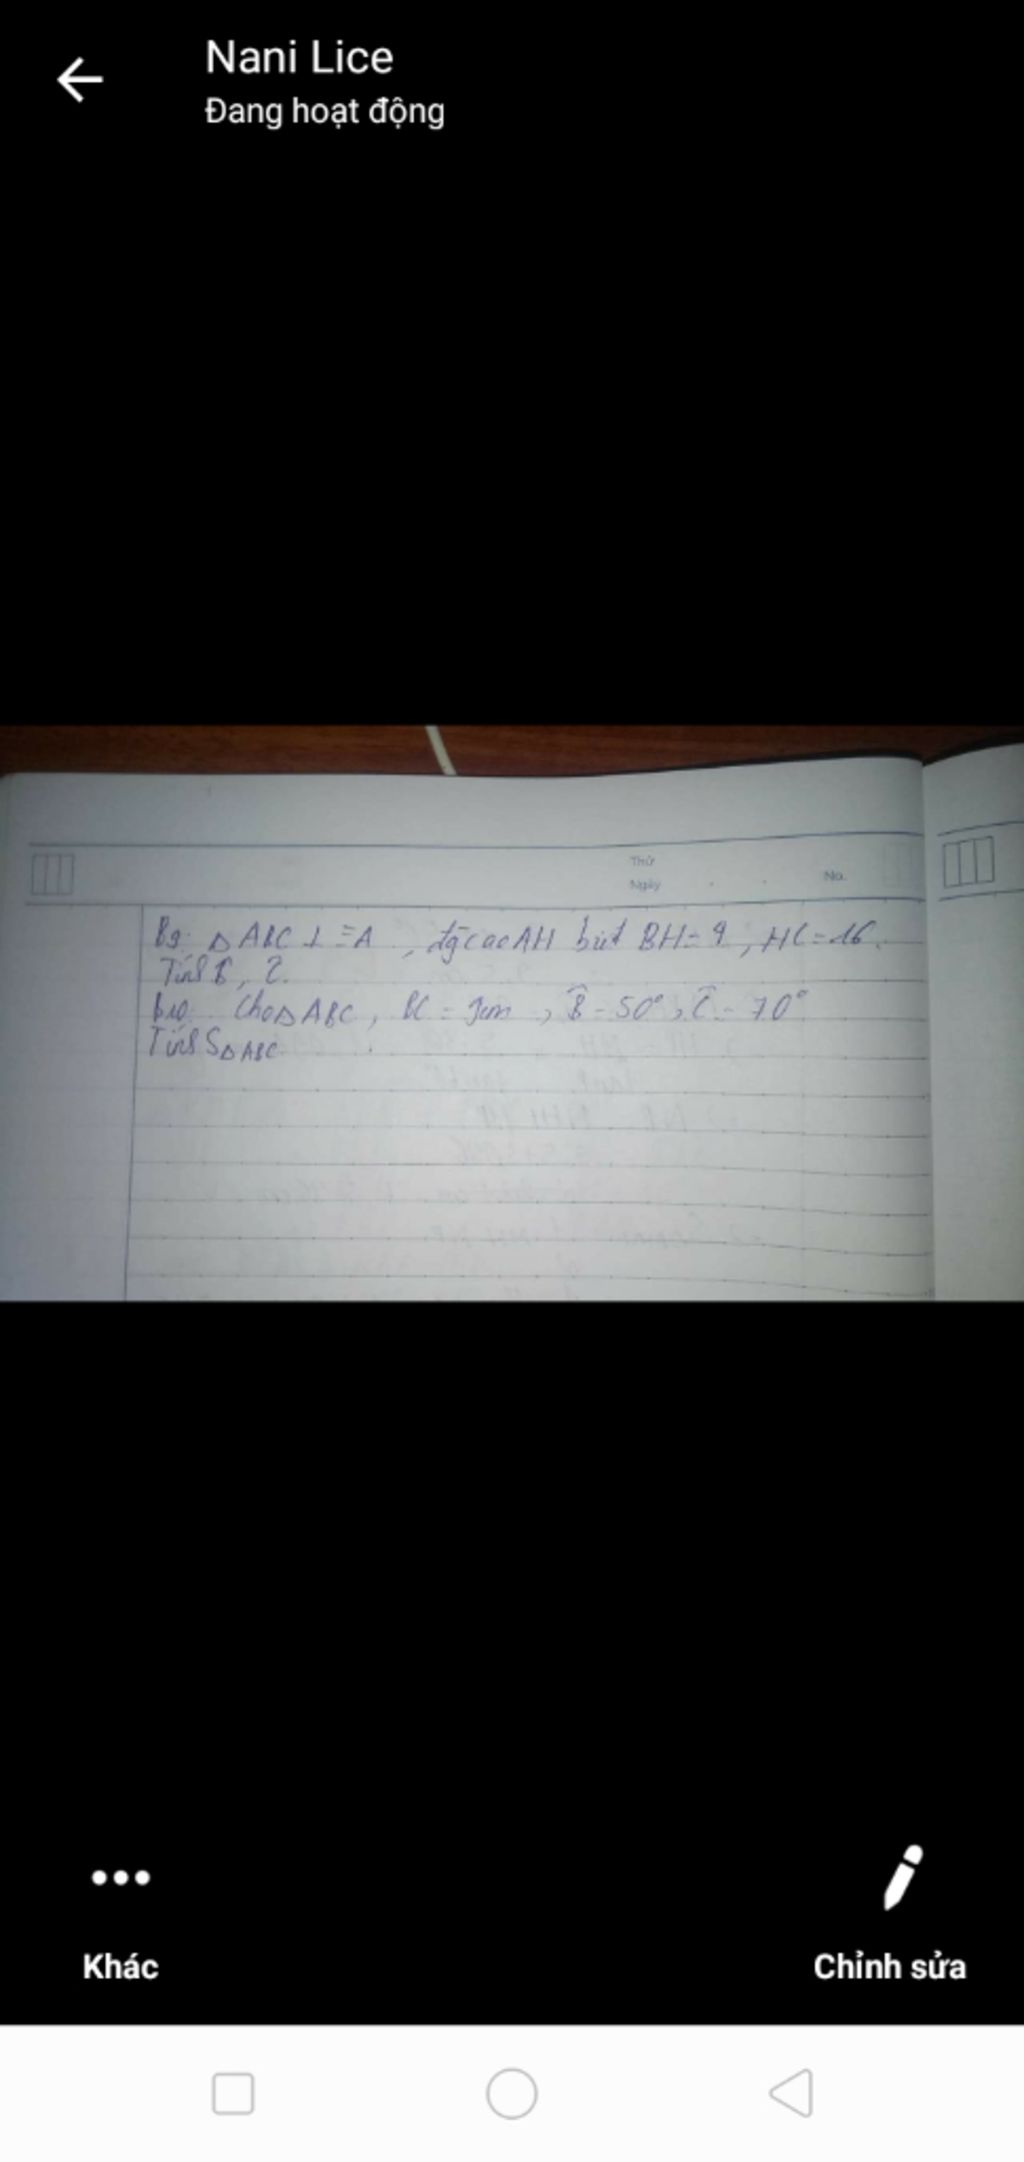 Nani Lice
Đang hoạt động
Thứ
Ngày
No.
B9: △ABC ⊥ = A, đg cao AH biết BH = 9, HC = 16.
Tính B, C.
B10. Cho△ABC, BC = 9cm, B̂ = 50°, Ĉ = 70°
Tính S△ABC
Khác
Chỉnh sửa